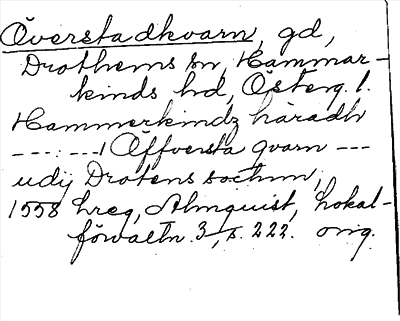 Överstadkvarn, gd,
Drothems sn, Hammar-
kinds hd, Österg. l.
Hammerkindz häradh
---:---:Öffversta qvarn ---
udij Drotens sochnn,
1558 hreg, Almquist, Lokal-
förvaltn. 3, s. 222. orig.